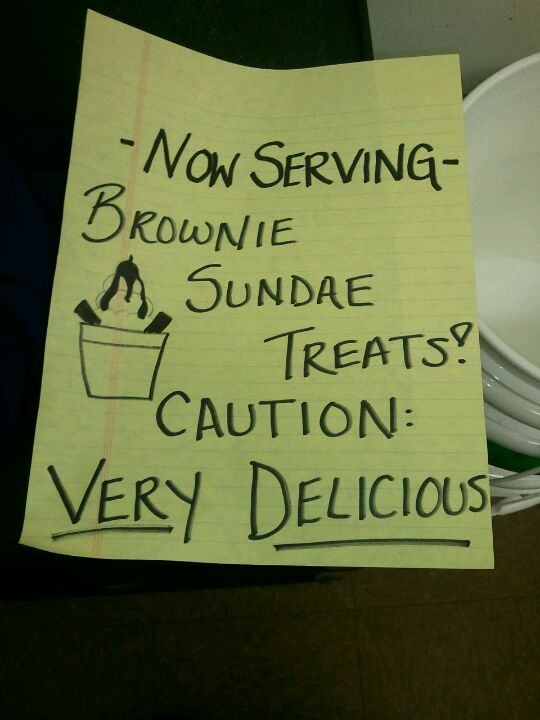 -NOW SERVING-
BROWNIE
SUNDAE
TREATS!
CAUTION:
VERY DELICIOUS